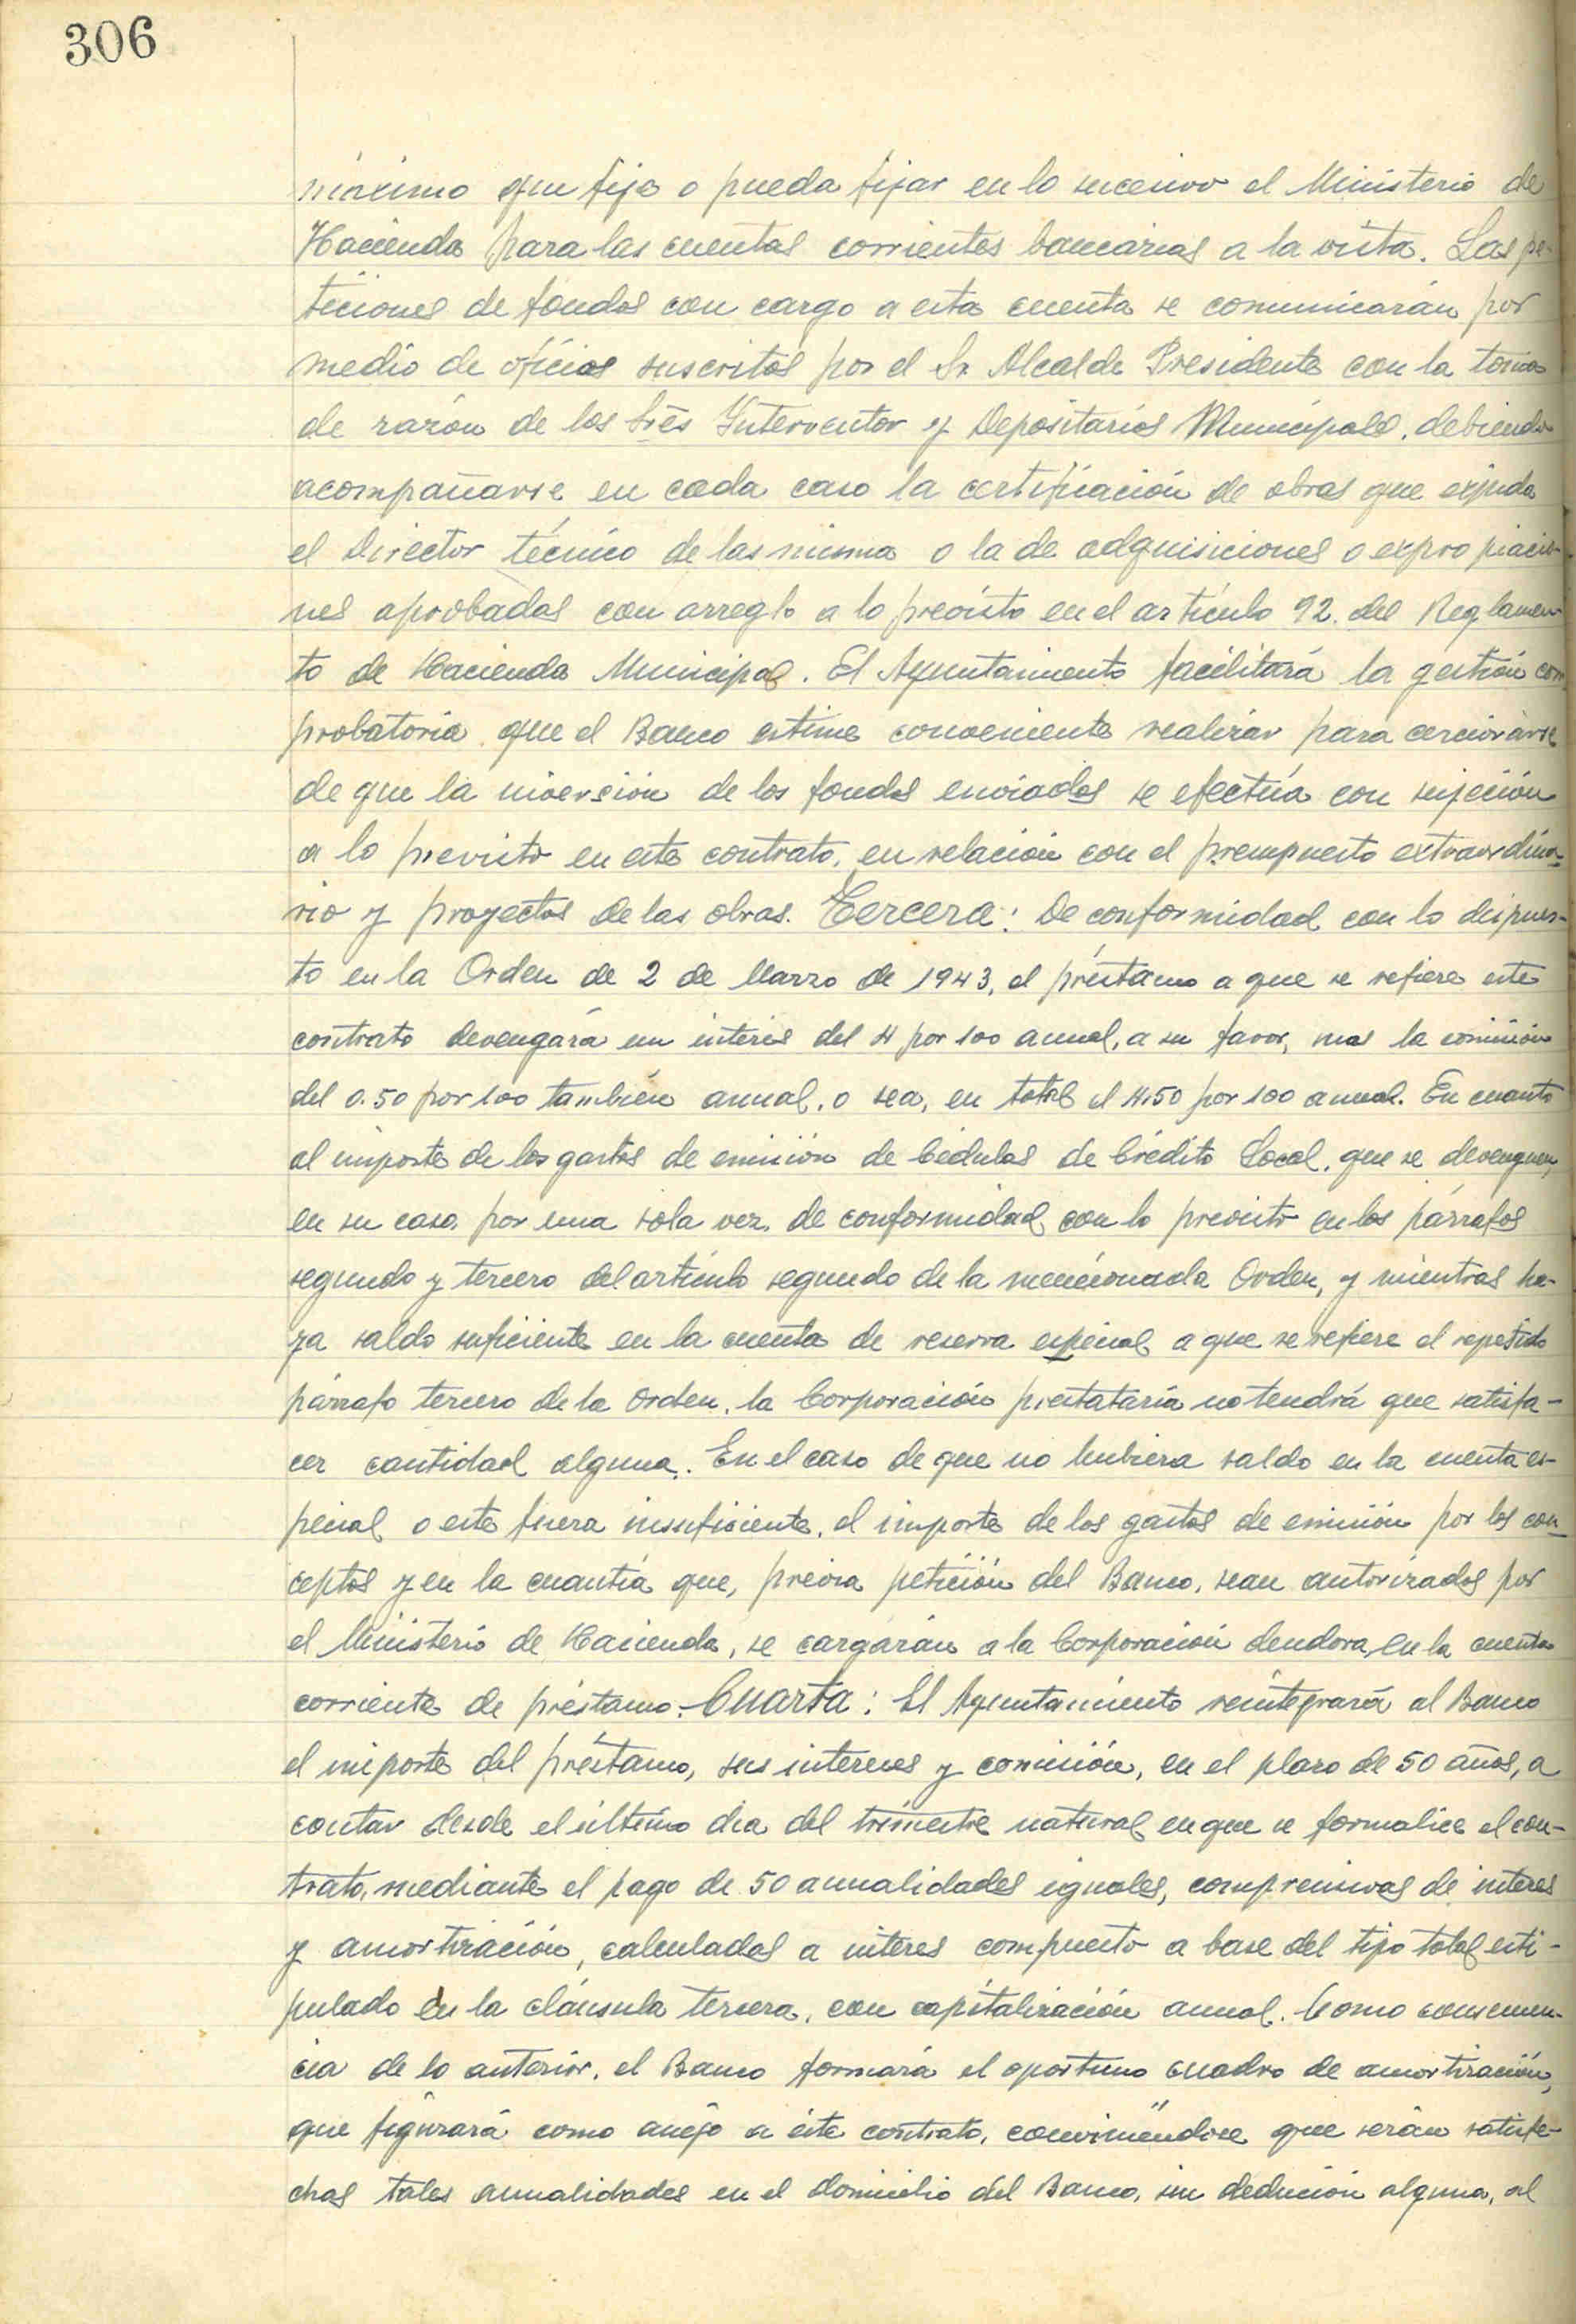 306
máximo que fije o pueda fijar en lo sucesivo el Ministerio de
Hacienda para las cuentas corrientes bancarias a la vista. Las pe-
ticiones de fondos con cargo a esta cuenta se comunicarán por
medio de oficios suscritos por el Sr. Alcalde Presidente con la toma
de razón de los Srés Interventor y Depositarios Municipale, debiendo
acompañarse en cada caso la certificación de obras que expida
el Director técnico de las misma o la de adquisiciones o expropiacio-
nes aprobadas con arreglo a lo previsto en el artículo 92. del Reglamen-
to de Hacienda Municipal. El Ayuntamiento facilitará la gestión com
probatoria que el Banco estime conveniente realizar para cerciorarse
de que la inversión de los fondos enviados se efectúa con sujeción
a lo previsto en este contrato, en relación con el presupuesto extraordina-
rio y proyectos de las obras. Tercera: De conformidad con lo dispues-
to en la Orden de 2 de Marzo de 1943, el préstamo a que se refiere este
contrato devengará un interés del 4 por 100 anual, a su favor, mas la comisión
del 0.50 por 100 también anual, o sea, en total el 4,50 por 100 anual. En cuanto
al importe de los gastos de emisión de Cédulas de Crédito Local, que se devenguen,
en su caso, por una sola vez, de conformidad con lo previsto en los párrafos
segundo y tercero del artículo segundo de la mencionada Orden, y mientras ha-
ya saldo suficiente en la cuenta de reserva especial a que se refiere el repetido
párrafo tercero de la Orden, la Corporación prestataria no tendrá que satisfa-
cer cantidad alguna. En el caso de que no hubiera saldo en la cuenta es-
pecial o este fuera insuficiente, el importe de los gastos de emisión por los con-
ceptos y en la cuantía que, previa petición del Banco, sean autorizados por
el Ministerio de Hacienda, se cargarán a la Corporación deudora, en la cuenta
corriente de préstamo. Cuarta: El Ayuntamiento reintegrará al Banco
el importe del préstamo, sus intereses y comisión, en el plazo de 50 años, a
contar desde el último día del trimestre natural en que se formalice el con-
trato, mediante el pago de 50 anualidades iguales, comprensivas de interes
y amortización, calculadas a interes compuesto a base del tipo total esti-
pulado en la cláusula tercera, con capitalización anual. Como consecuen-
cia de lo anterior, el Banco formará el oportuno cuadro de amortización,
que figurará como anejo a éste contrato, conviniéndose que serán satisfe-
chas tales anualidades en el domicilio del Banco, sin deducion alguna, al